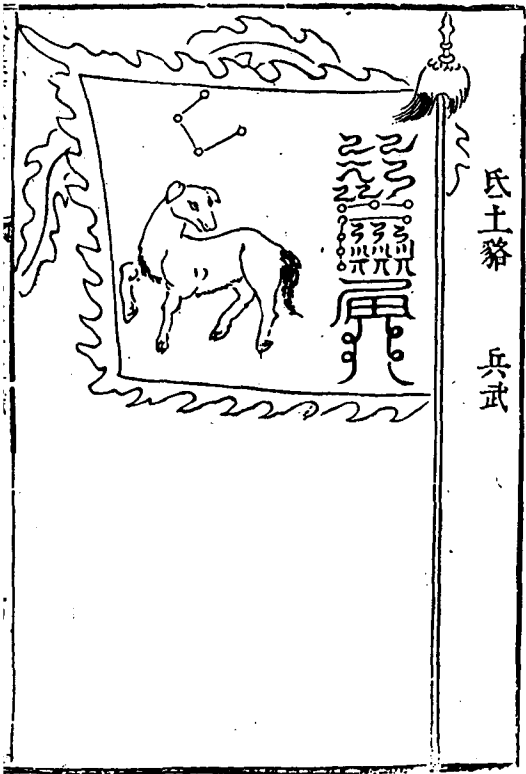 氐土貉
兵武